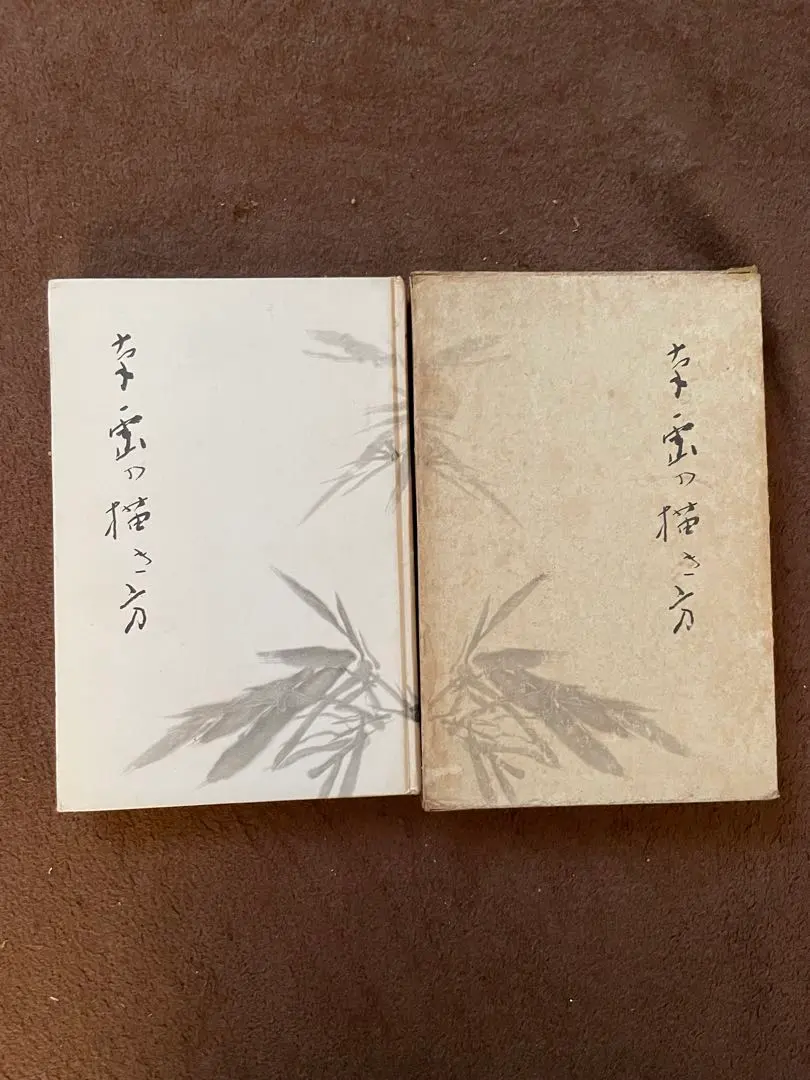 草画の描き方
草画の描き方